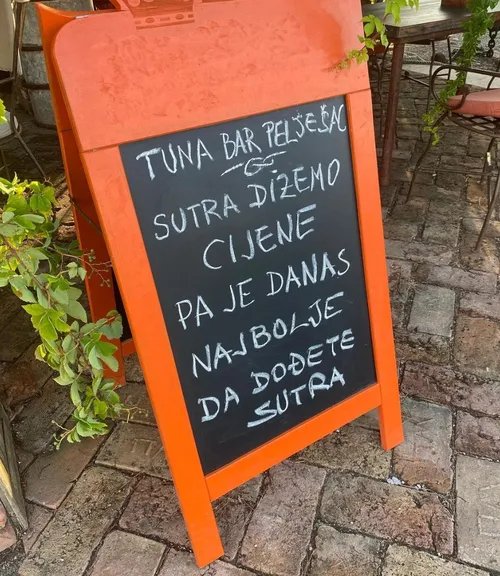 TUNA BAR PELJEŠAC
SUTRA DIŽEMO
CIJENE
PA JE DANAS
NAJBOLJE
DA DOĐETE
SUTRA